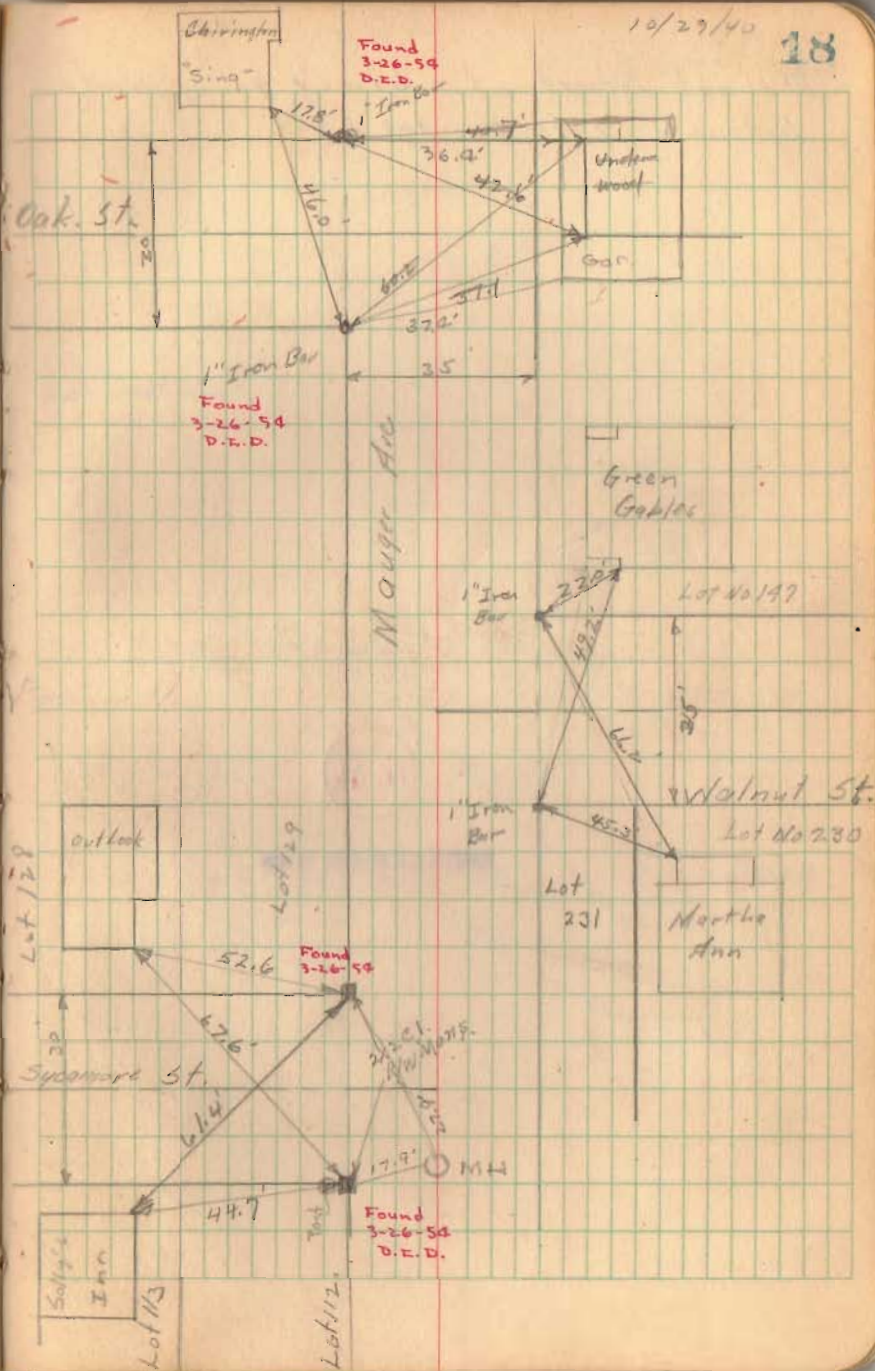 10/29/40
18
Chivington
"Sing"
Found
3-26-54
D.E.D.
1" Iron Bar
17.8'
36.4'
42.6'
46.0'
Underwood
Gar.
Oak. St.
30
60.2'
57.1
37.2'
1" Iron Bar
Found
3-26-54
D.E.D.
35
Mauger Ave
Green
Gables
1" Iron
Bar
22.0'
Lot No 147
49.2'
66.2'
35'
Walnut St.
1" Iron
Bar
45.3'
Lot No 230
Lot
231
Martha
Ann
Outlook
Lot 128
Lot 129
52.6
Found
3-26-54
67.6'
30'
Sycamore St.
61.4'
R/W Mons.
17.9'
MH
44.7'
Post
Found
3-26-54
D.E.D.
Sally's
Inn
Lot 113
Lot 112.